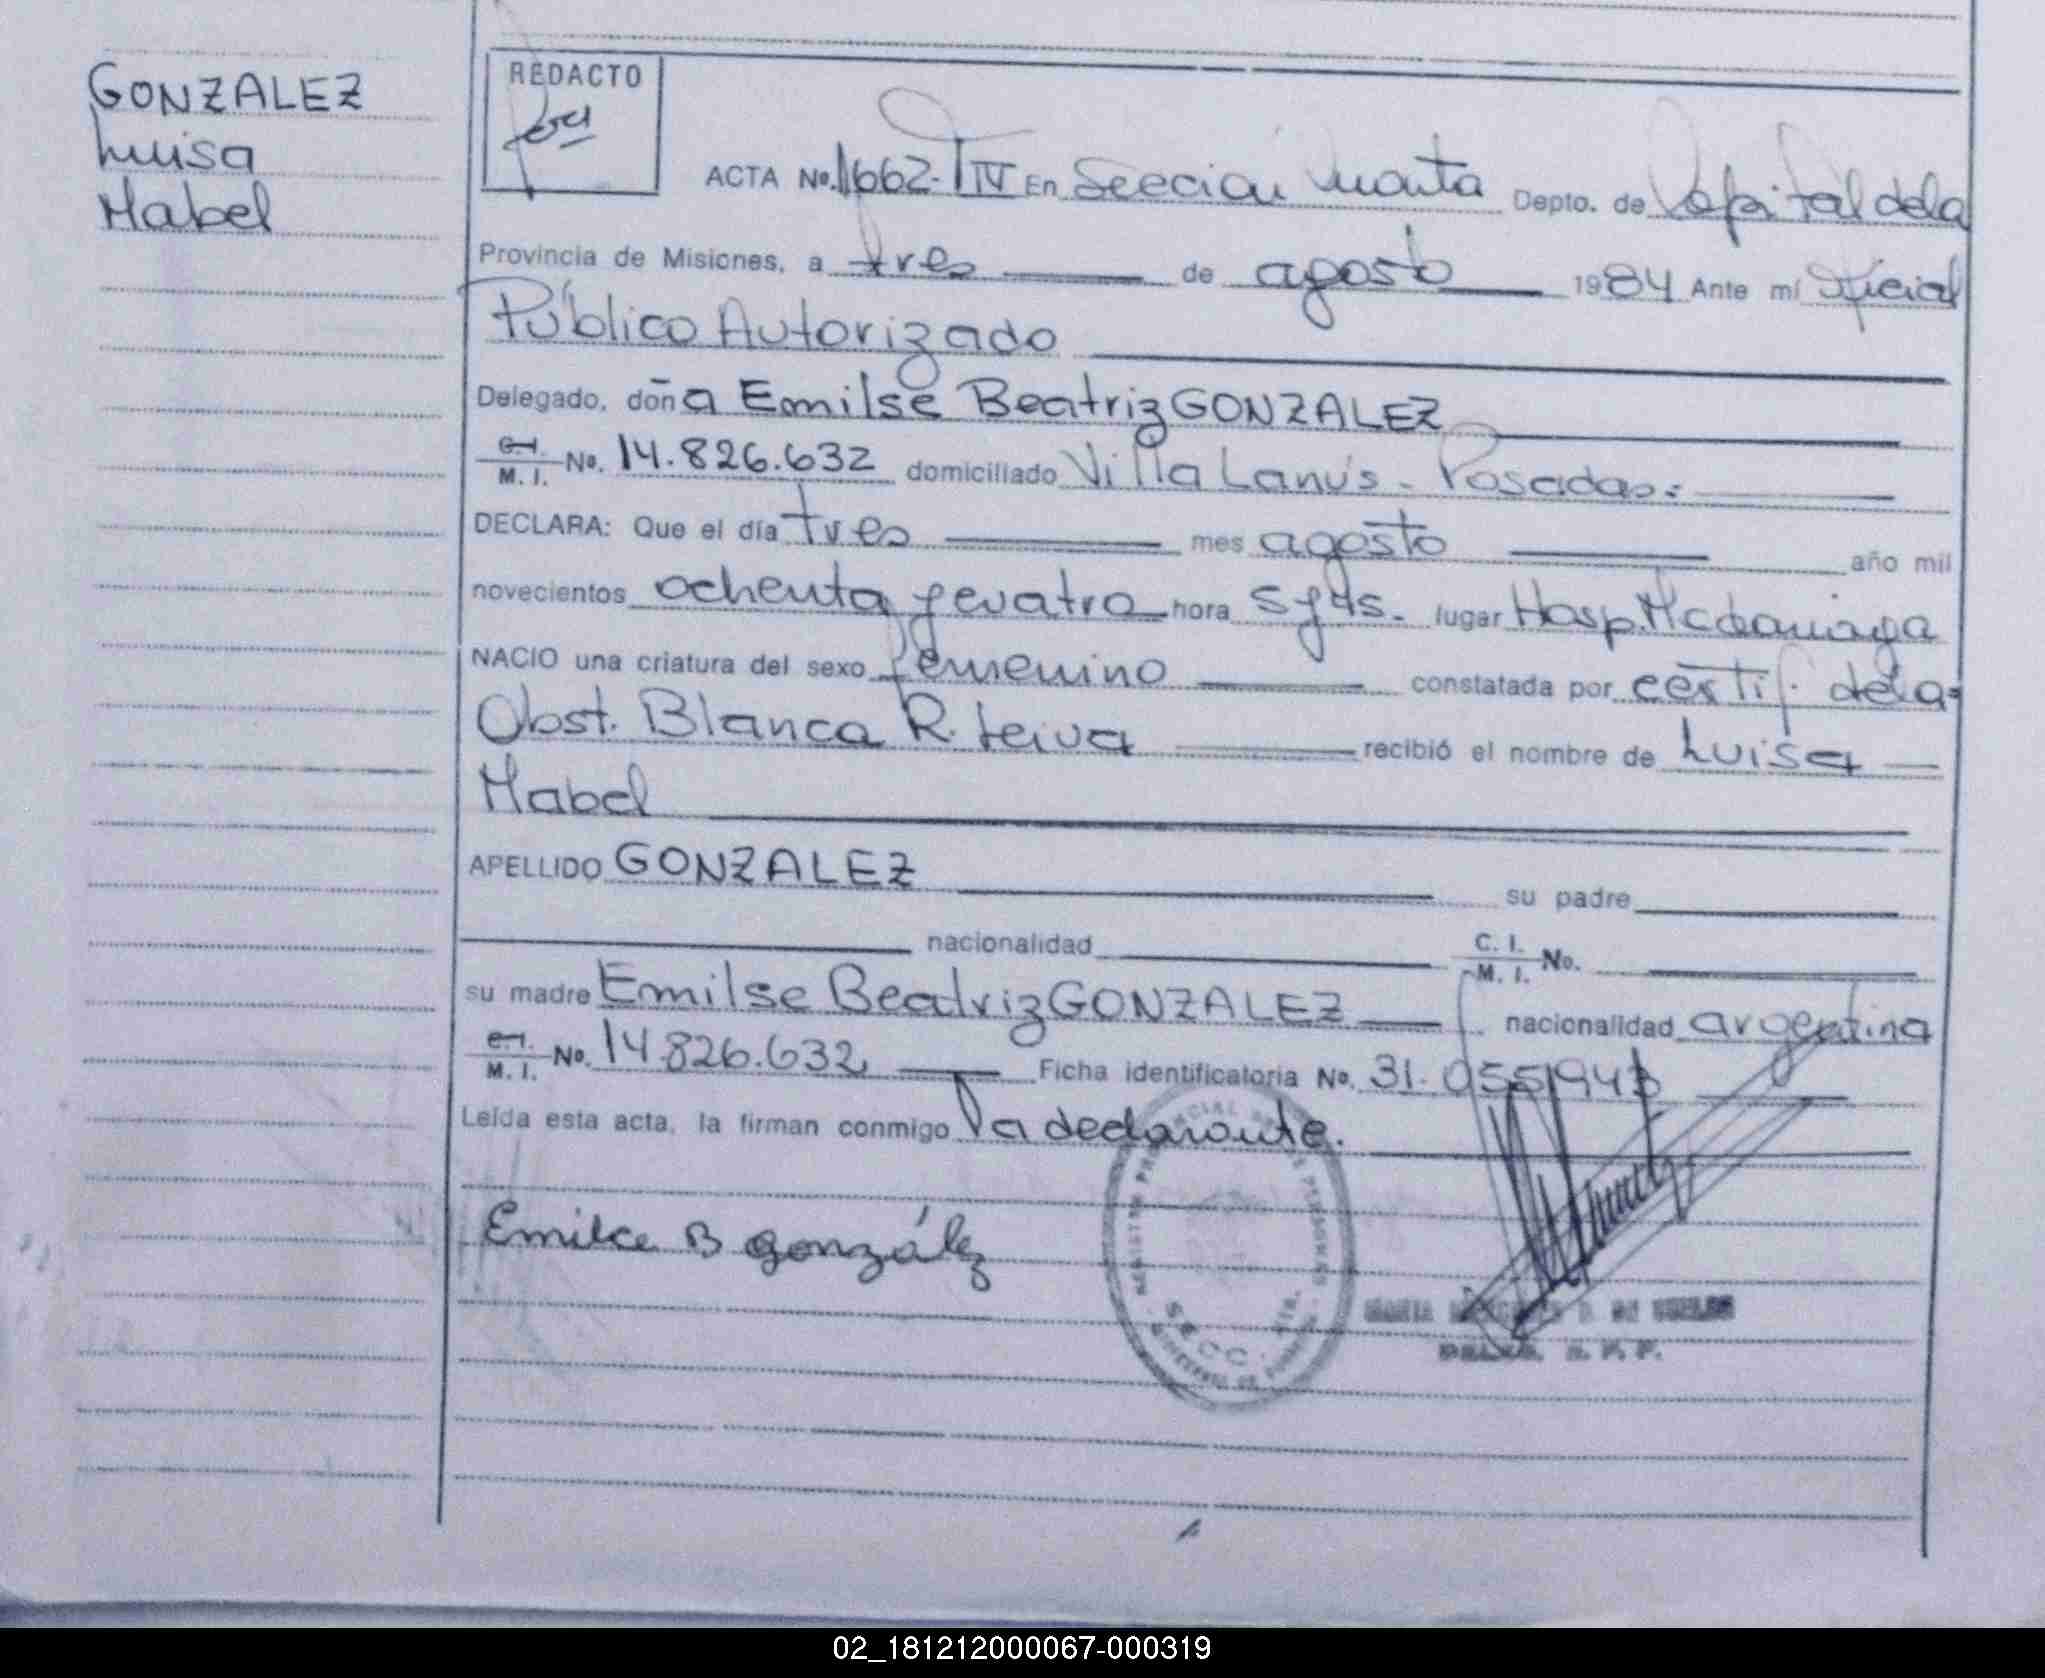 GONZALEZ
Luisa
Mabel
REDACTO
ACTA No. 1662-TIV En Sección Cuarta Depto. de Capital de la
Provincia de Misiones, a tres de agosto 1984 Ante mí Oficial
Público Autorizado
Delegado, doña Emilse Beatriz GONZALEZ
C.I. M. I. No. 14.826.632 domiciliado Villa Lanús - Posadas:
DECLARA: Que el día tres mes agosto año mil
novecientos ochenta y cuatro hora 5 y 45. lugar Hosp. Madariaga
NACIO una criatura del sexo femenino constatada por certif. de la=
Obst. Blanca R. Leiva recibió el nombre de Luisa
Mabel
APELLIDO GONZALEZ su padre
nacionalidad C. I. M. I. No.
su madre Emilse Beatriz GONZALEZ nacionalidad argentina
C.I. M. I. No. 14.826.632 Ficha identificatoria No. 31.055943
Leída esta acta, la firman conmigo la declarante.
Emilce B González
REGISTRO PROVINCIAL DE LAS PERSONAS
SECC. 4TA.
MINISTERIO DE GOBIERNO
02_181212000067-000319